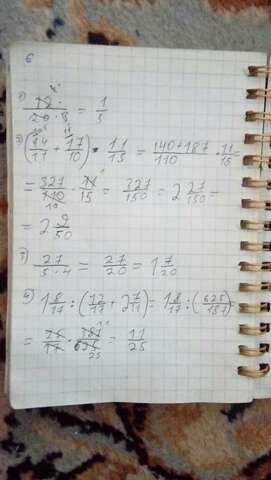 6
1) 12 · / 20 · 3 = 1/5
2) (14/11 + 17/10) · 11/15 = (140+187)/110 · 11/15 =
= 327/110 · 11/15 = 327/150 = 2 27/150 =
= 2 9/50
3) 27/(5·4) = 27/20 = 1 7/20
4) 1 8/17 : (17/17 + 2 7/11) = 1 8/17 : (625/187) =
= 25/17 · 187/625 = 11/25